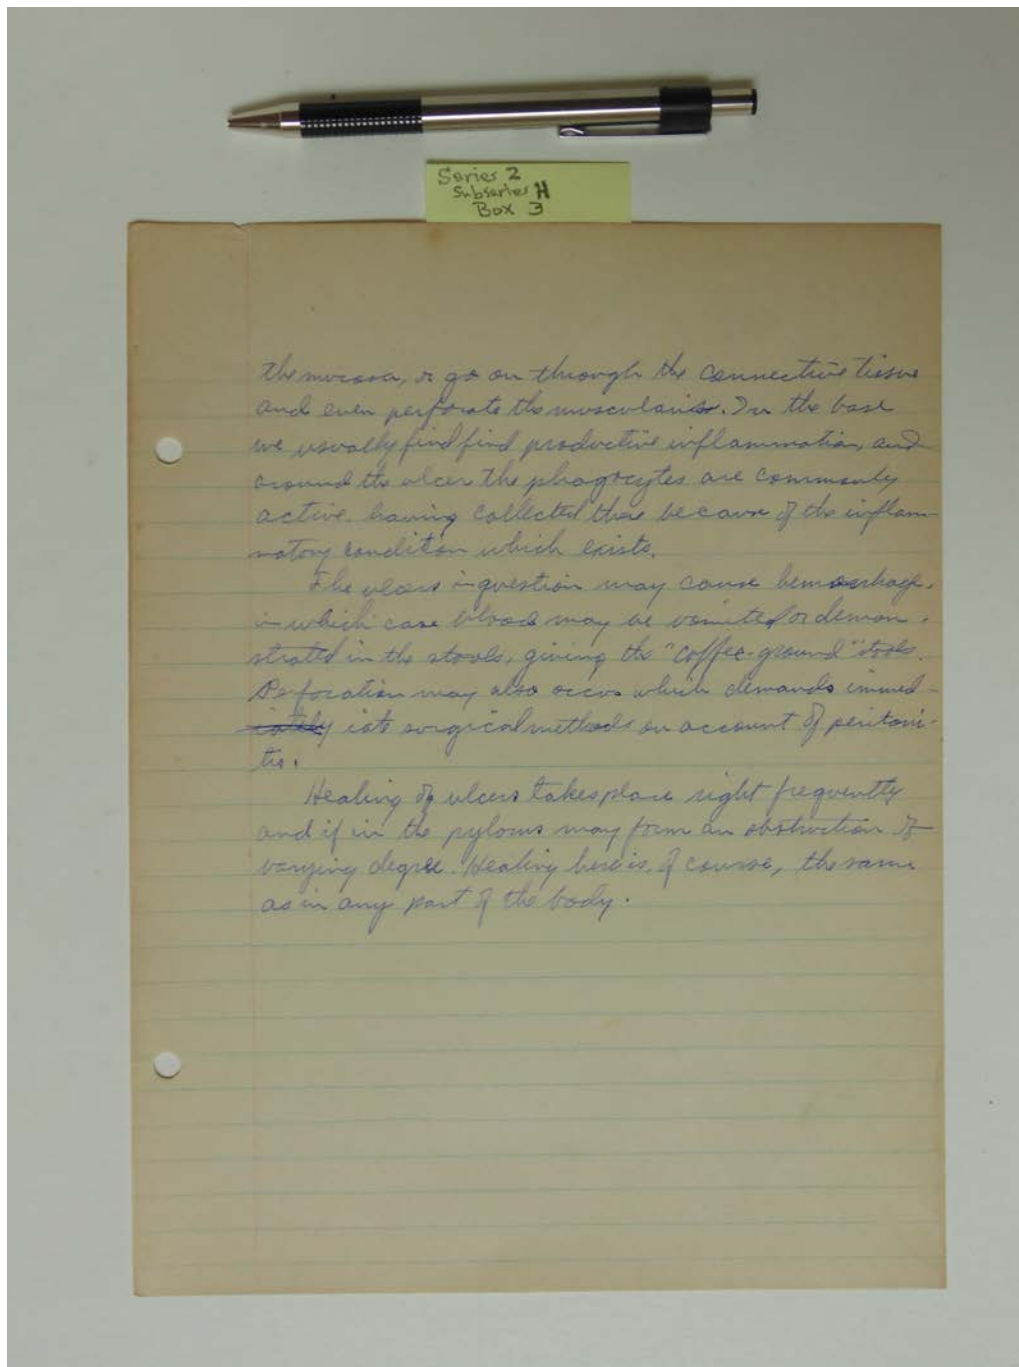 Series 2
Subseries H
Box 3
the mucosa, or go on through the connective tissue
and even perforate the muscularis. In the base
we usually find find productive inflammation, and
around the ulcer the phagocytes are commonly
active having collected there because of the inflam-
matory condition which exists.
The ulcers in question may cause hemorrhage,
in which case blood may be vomited or demon-
strated in the stools, giving the "coffee-ground" stools.
Perforation may also occur which demands immed-
iately iate surgical methods on account of peritoni-
tis.
Healing of ulcers takes place right frequently
and if in the pylorus may form an obstruction of
varying degree. Healing here is, of course, the same
as in any part of the body.